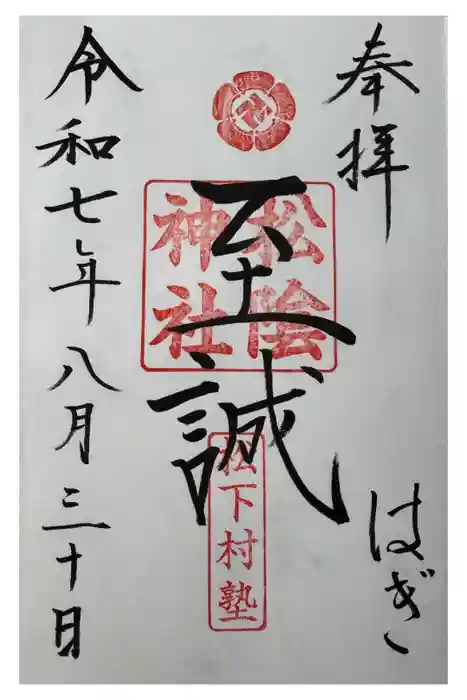 奉拝
はぎ
松陰神社
至誠
松下村塾
令和七年八月三十日